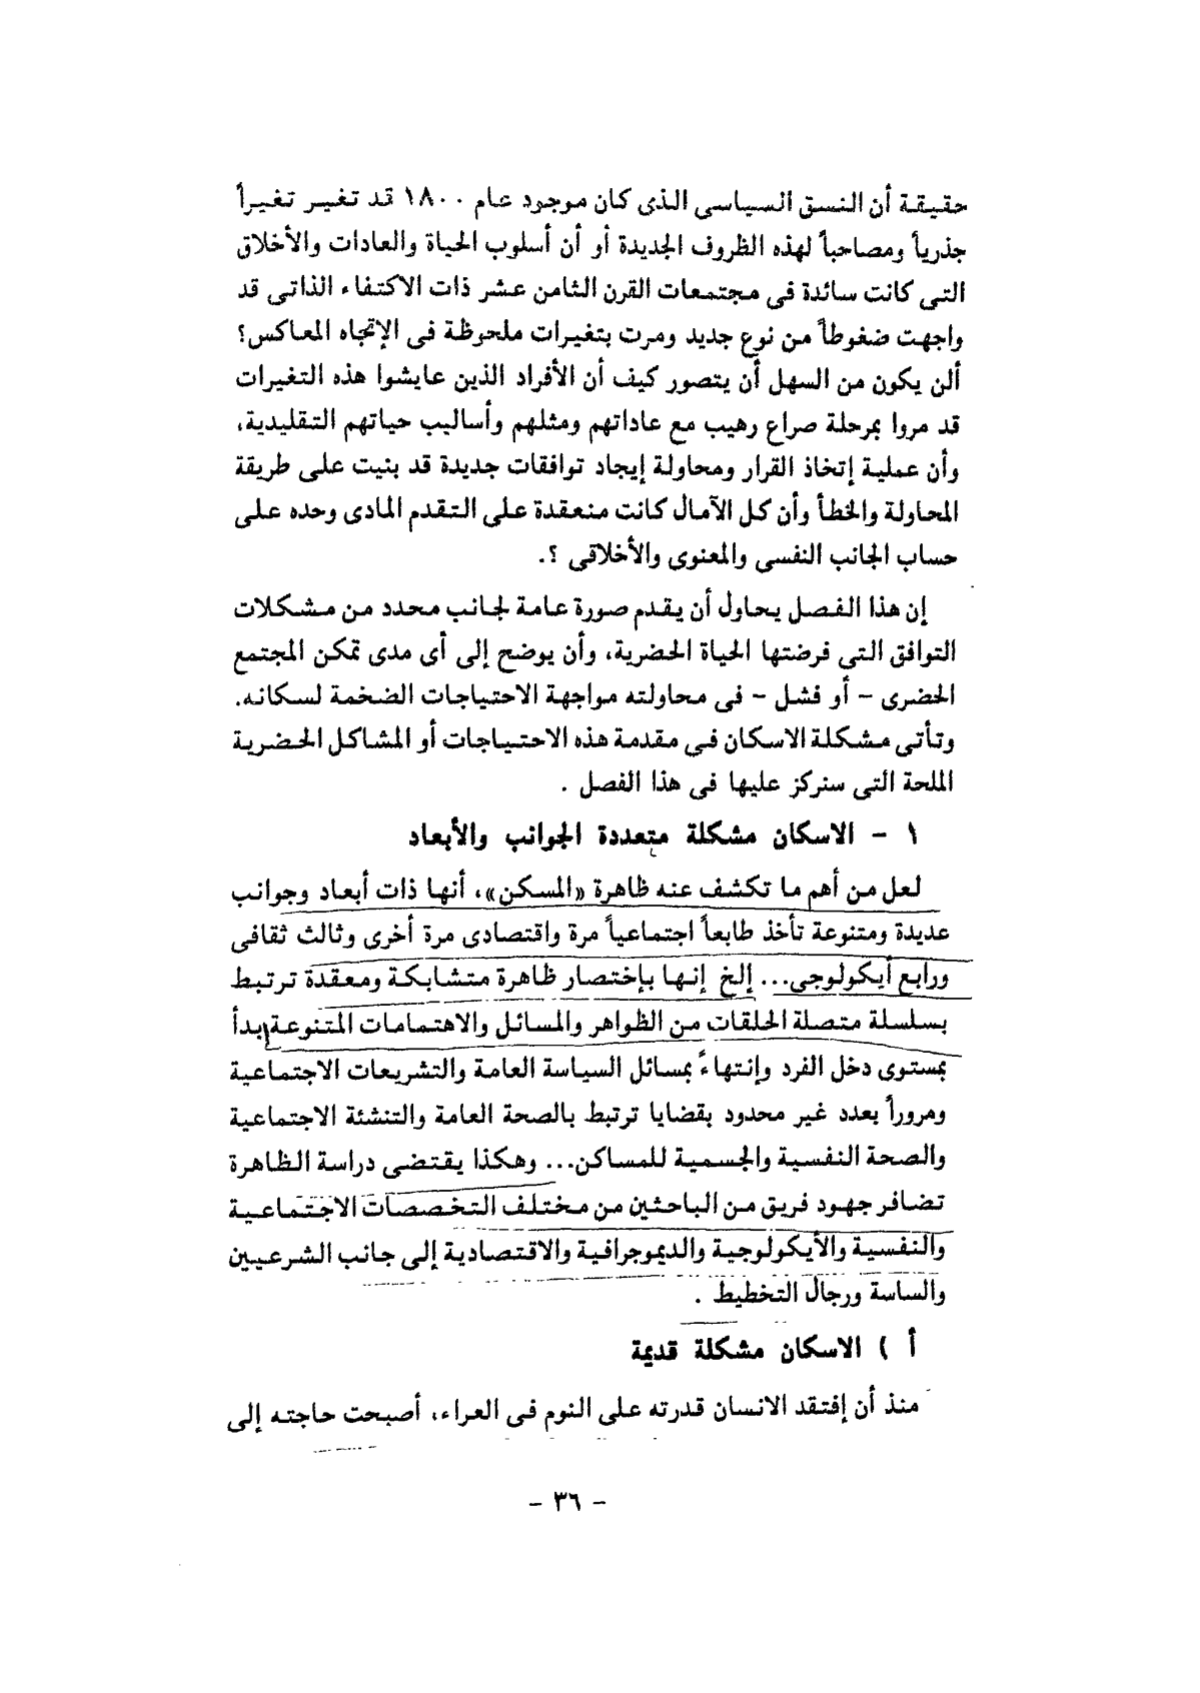 حقيقة أن النسق السياسى الذى كان موجود عام ١٨٠٠ قد تغير تغيراً
جذرياً ومصاحباً لهذه الظروف الجديدة أو أن أسلوب الحياة والعادات والأخلاق
التى كانت سائدة فى مجتمعات القرن الثامن عشر ذات الاكتفاء الذاتى قد
واجهت ضغوطاً من نوع جديد ومرت بتغيرات ملحوظة فى الإتجاه المعاكس؟
ألن يكون من السهل أن يتصور كيف أن الأفراد الذين عايشوا هذه التغيرات
قد مروا بمرحلة صراع رهيب مع عاداتهم ومثلهم وأساليب حياتهم التقليدية،
وأن عملية إتخاذ القرار ومحاولة إيجاد توافقات جديدة قد بنيت على طريقة
المحاولة والخطأ وأن كل الآمال كانت منعقدة على التقدم المادى وحده على
حساب الجانب النفسى والمعنوى والأخلاقى ؟.
إن هذا الفصل يحاول أن يقدم صورة عامة لجانب محدد من مشكلات
التوافق التى فرضتها الحياة الحضرية، وأن يوضح إلى أى مدى تمكن المجتمع
الحضرى – أو فشل – فى محاولته مواجهة الاحتياجات الضخمة لسكانه.
وتأتى مشكلة الاسكان فى مقدمة هذه الاحتياجات أو المشاكل الحضرية
الملحة التى سنركز عليها فى هذا الفصل .
١ – الاسكان مشكلة متعددة الجوانب والأبعاد
لعل من أهم ما تكشف عنه ظاهرة «المسكن»، أنها ذات أبعاد وجوانب
عديدة ومتنوعة تأخذ طابعاً اجتماعياً مرة واقتصادى مرة أخرى وثالث ثقافى
ورابع أيكولوجى... إلخ إنها بإختصار ظاهرة متشابكة ومعقدة ترتبط
بسلسلة متصلة الحلقات من الظواهر والمسائل والاهتمامات المتنوعة بدأ
بمستوى دخل الفرد وإنتهاءً بمسائل السياسة العامة والتشريعات الاجتماعية
ومروراً بعدد غير محدود بقضايا ترتبط بالصحة العامة والتنشئة الاجتماعية
والصحة النفسية والجسمية للمساكن... وهكذا يقتضى دراسة الظاهرة
تضافر جهود فريق من الباحثين من مختلف التخصصات الاجتماعية
والنفسية والأيكولوجية والديموجرافية والاقتصادية إلى جانب الشرعيين
والساسة ورجال التخطيط .
أ ) الاسكان مشكلة قديمة
منذ أن إفتقد الانسان قدرته على النوم فى العراء، أصبحت حاجته إلى
– ٣٦ –